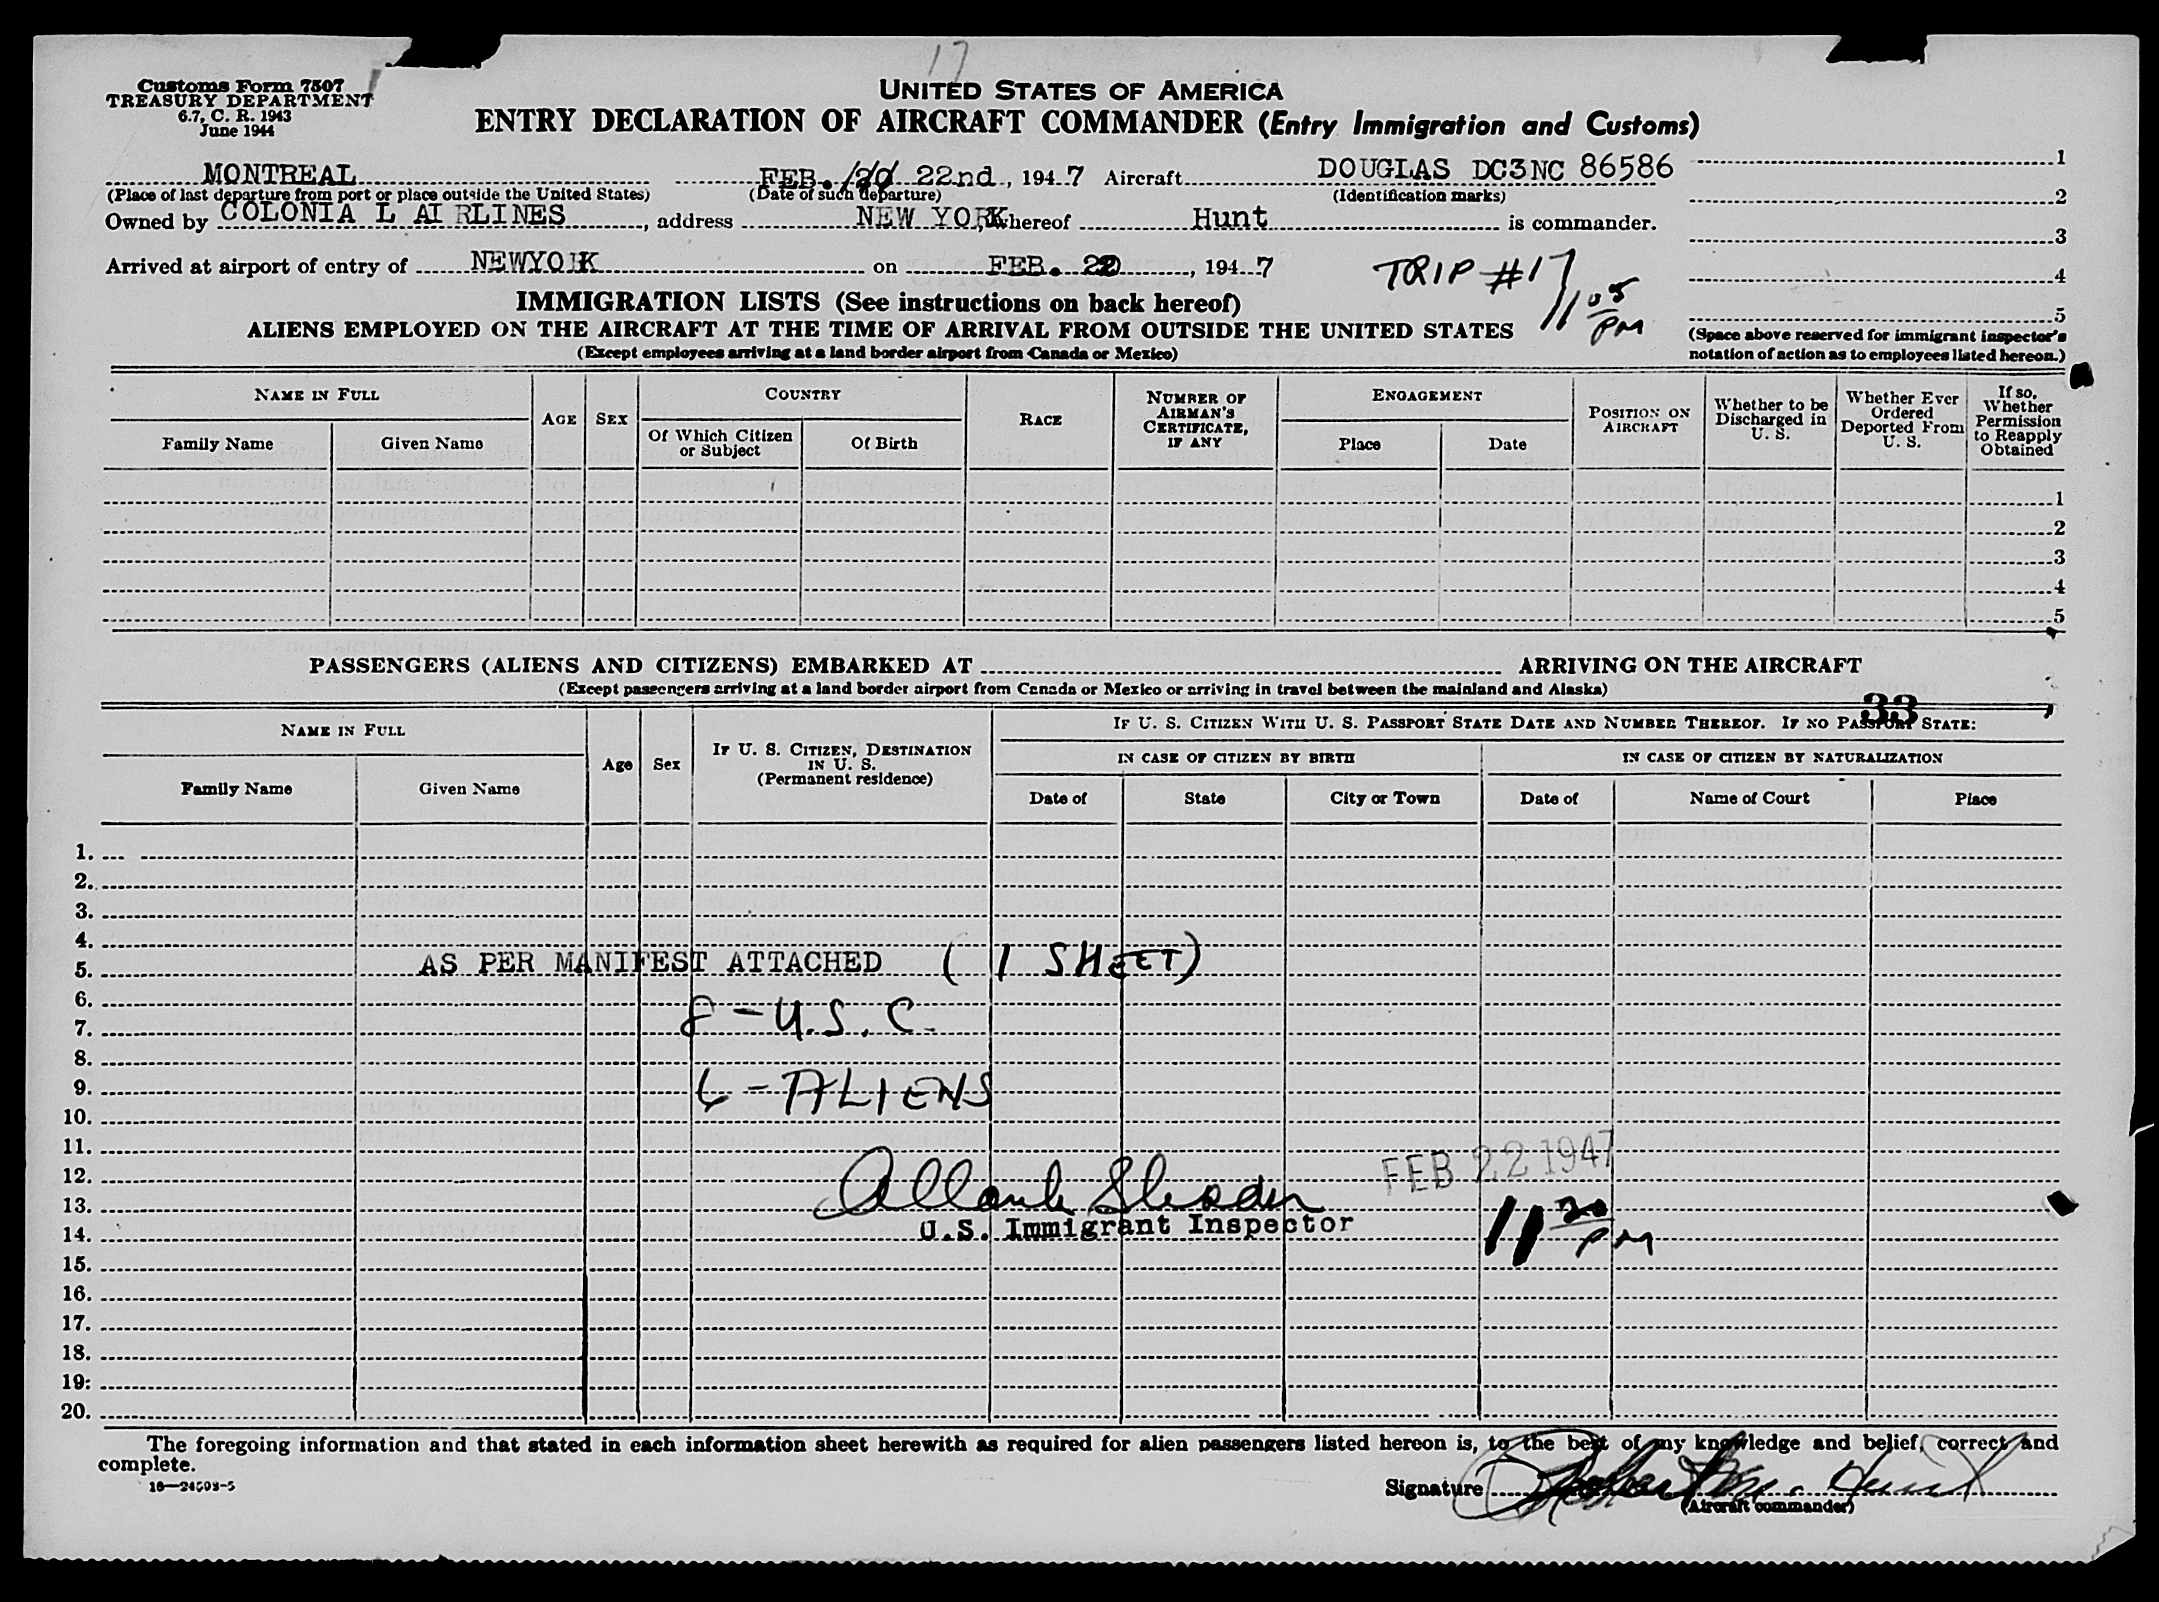 17
Customs Form 7507
TREASURY DEPARTMENT
6.7, C. R. 1943
June 1944
UNITED STATES OF AMERICA
ENTRY DECLARATION OF AIRCRAFT COMMANDER (Entry Immigration and Customs)
MONTREAL FEB. 22nd, 194 7 Aircraft DOUGLAS DC3NC 86586
(Place of last departure from port or place outside the United States) (Date of such departure) (Identification marks)
Owned by COLONIA L AI RLINES, address NEW YORK, whereof Hunt is commander.
Arrived at airport of entry of NEWYORK on FEB. 22, 194 7
TRIP #17
11 05 PM
1
2
3
4
5
(Space above reserved for immigrant inspector's
notation of action as to employees listed hereon.)
IMMIGRATION LISTS (See instructions on back hereof)
ALIENS EMPLOYED ON THE AIRCRAFT AT THE TIME OF ARRIVAL FROM OUTSIDE THE UNITED STATES
(Except employees arriving at a land border airport from Canada or Mexico)
NAME IN FULL
Family Name Given Name
AGE SEX
COUNTRY
Of Which Citizen or Subject Of Birth
RACE
NUMBER OF AIRMAN'S CERTIFICATE, IF ANY
ENGAGEMENT
Place Date
POSITION ON AIRCRAFT
Whether to be Discharged in U. S.
Whether Ever Ordered Deported From U. S.
If so, Whether Permission to Reapply Obtained
1
2
3
4
5
PASSENGERS (ALIENS AND CITIZENS) EMBARKED AT ARRIVING ON THE AIRCRAFT
(Except passengers arriving at a land border airport from Canada or Mexico or arriving in travel between the mainland and Alaska)
33
NAME IN FULL
Family Name Given Name
Age Sex
IF U. S. CITIZEN, DESTINATION IN U. S.
(Permanent residence)
IF U. S. CITIZEN WITH U. S. PASSPORT STATE DATE AND NUMBER THEREOF. IF NO PASSPORT STATE:
IN CASE OF CITIZEN BY BIRTH IN CASE OF CITIZEN BY NATURALIZATION
Date of State City or Town Date of Name of Court Place
1.
2.
3.
4.
5. AS PER MANIFEST ATTACHED ( 1 SHEET)
6.
7. 8 - U.S.C.
8.
9. 6 - ALIENS
10.
11. FEB 22 1947
12.
13.
14. U.S. Immigrant Inspector 11 20 PM
15.
16.
17.
18.
19.
20.
The foregoing information and that stated in each information sheet herewith as required for alien passengers listed hereon is, to the best of my knowledge and belief, correct and
complete.
16—24508-5
Signature Hunt
(Aircraft commander)